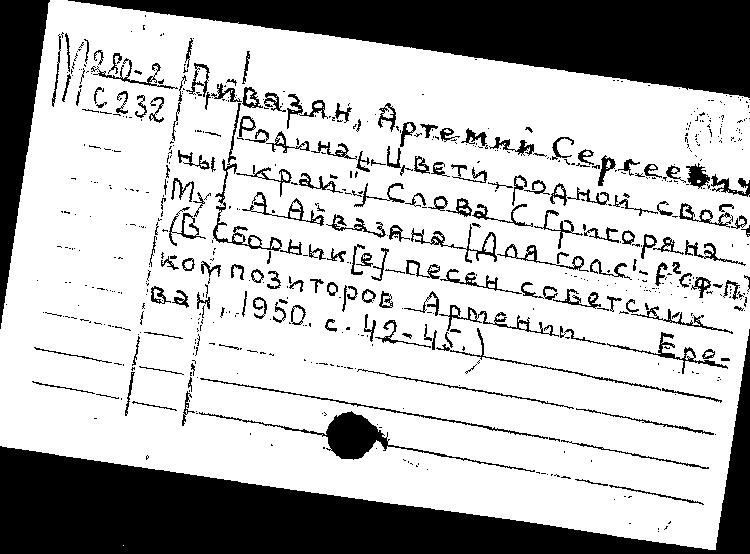 М 280-2
С 232
Айвазян, Артемий Сергеевич
— Родина ["Цвети, родной, свобод
ный край"] Слова С. Григоряна
Муз. А. Айвазяна [Для гол. с¹-f² с ф-п.]
(В Сборник[е] песен советских
композиторов Армении. Ере-
ван, 1950. с. 42-45.)